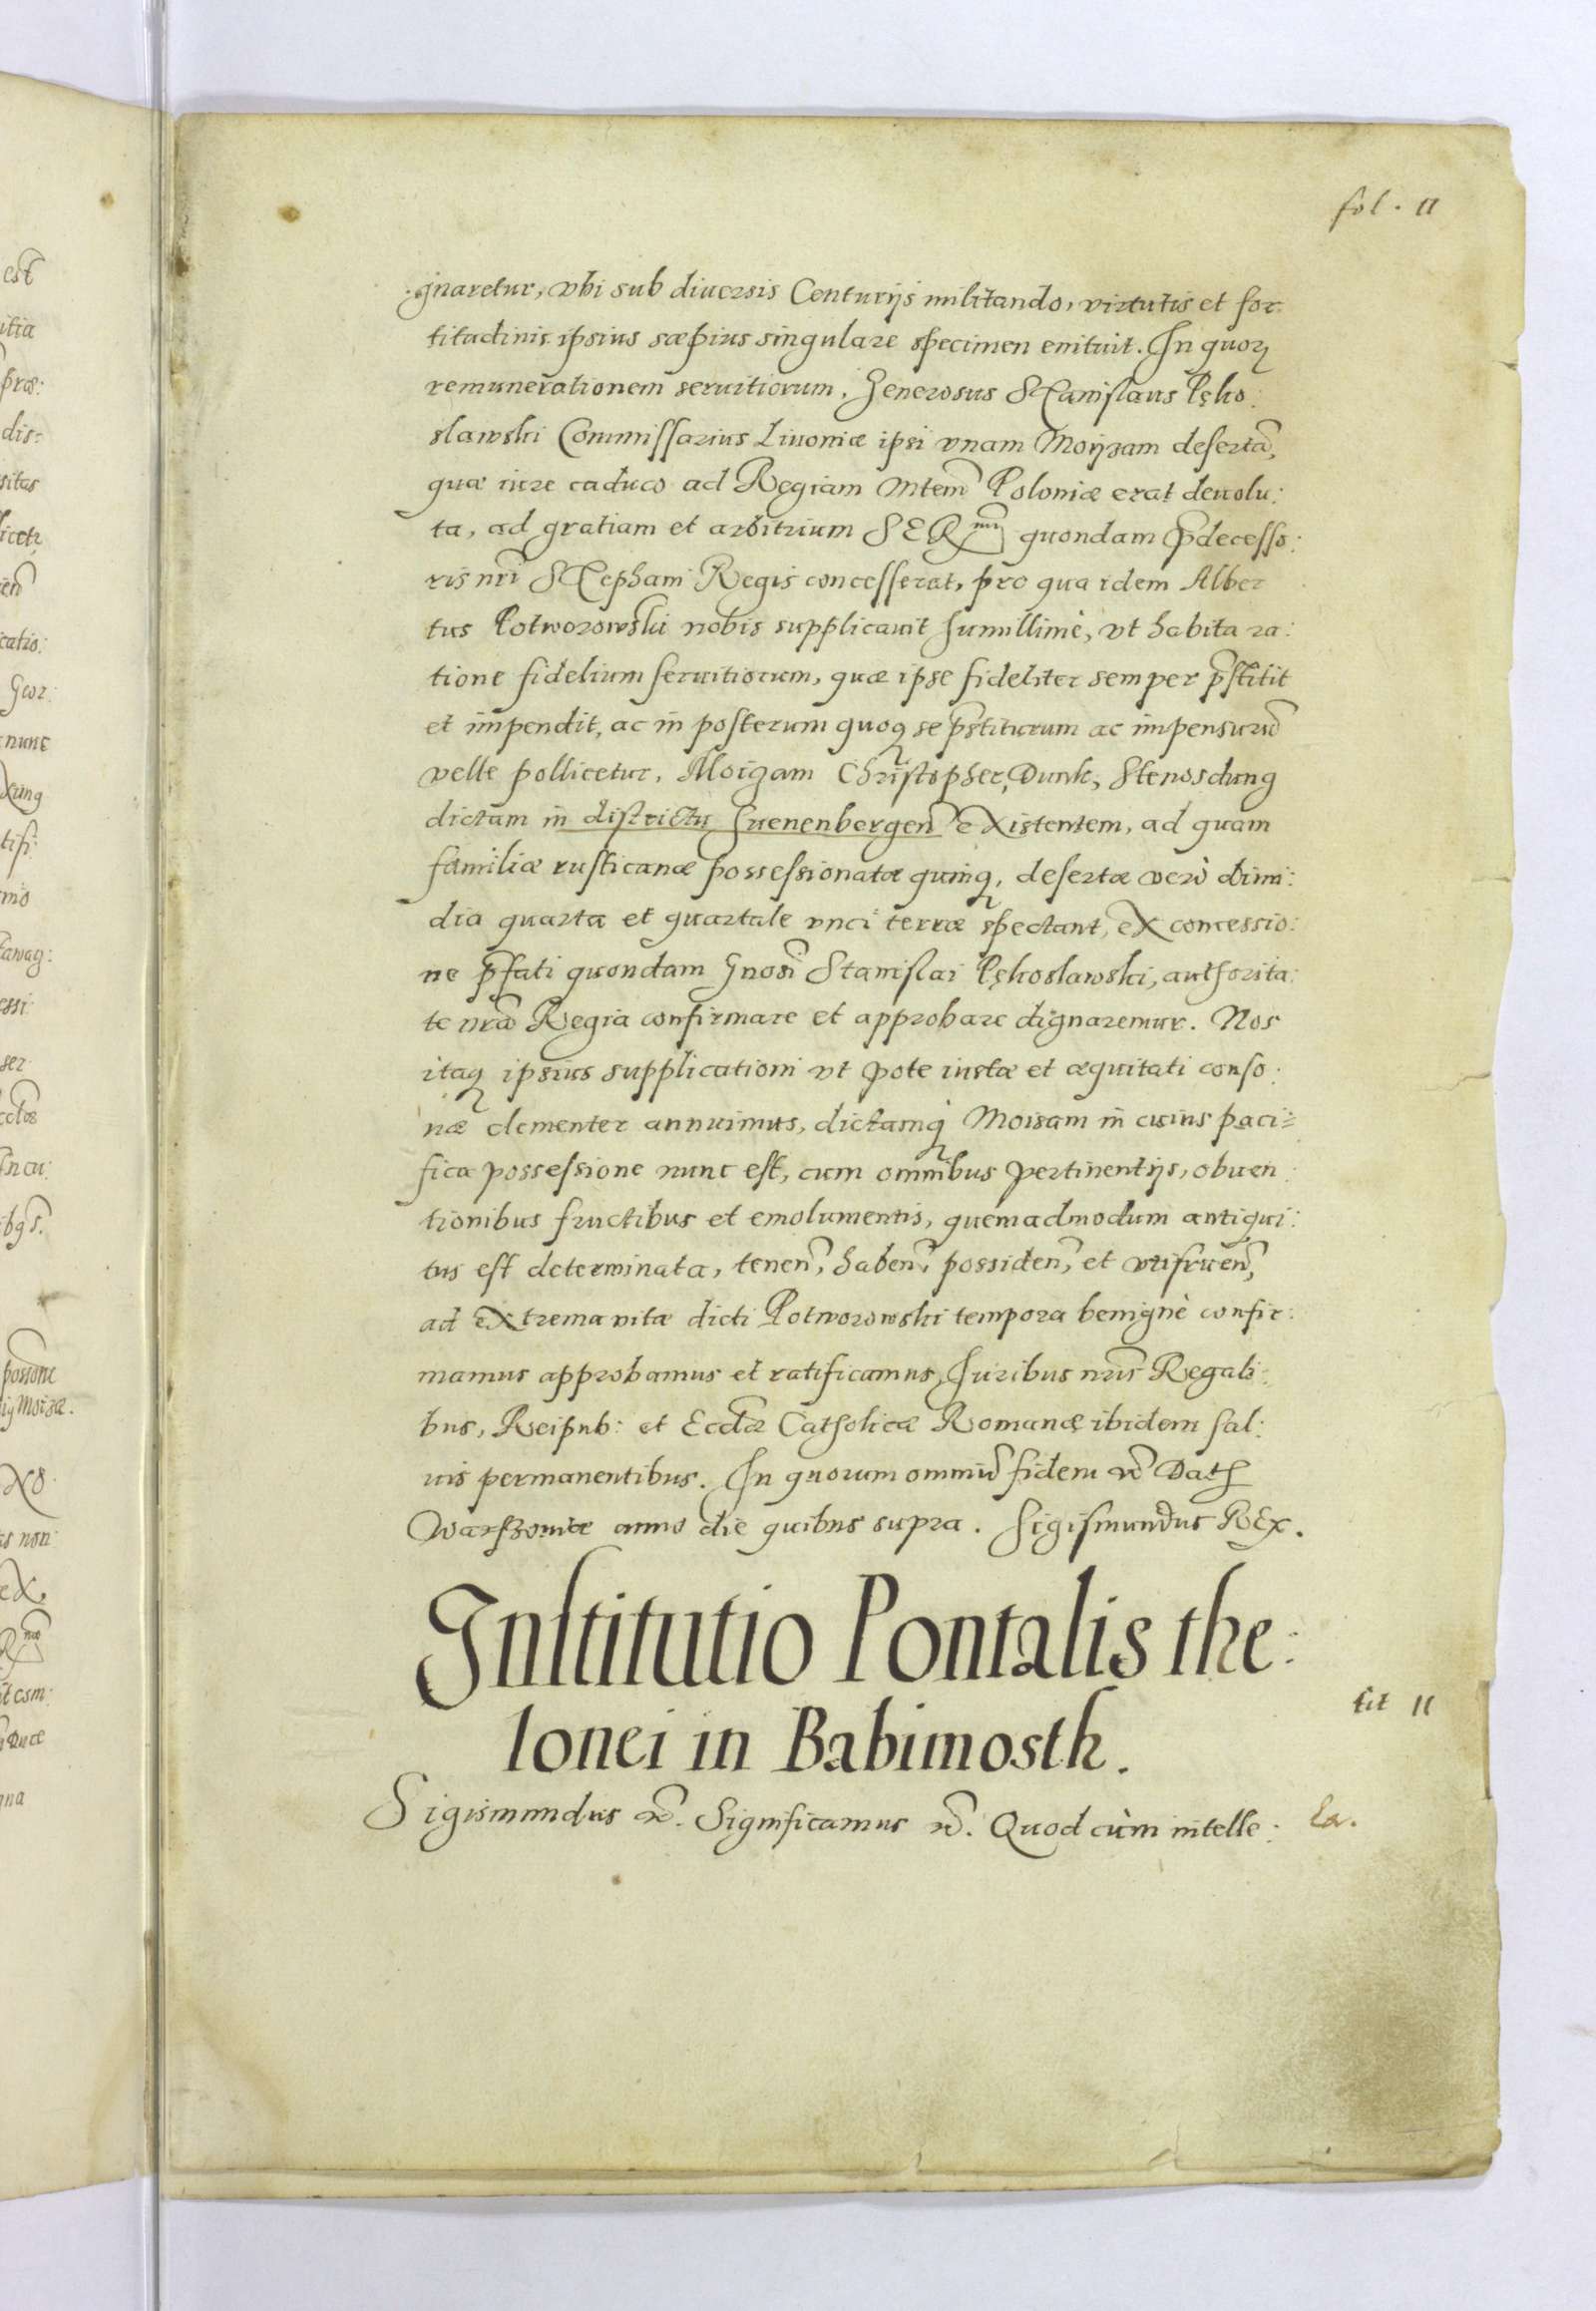 fol. 11
gnaretur, vbi sub diuersis Centurijs militando, virtutis et for:
titudinis ipsius sæpius singulare specimen enituit. In quoꝝ
remunerationem seruitiorum, Generosus Stanislaus Pękо:
slawski Commissarius Liuoniæ ipsi vnam Moyzam desertã,
quæ iure caduco ad Regiam Mtem̃ Poloniæ erat deuolu:
ta, ad gratiam et arbitrium SERmi quondam p̃decesso:
ris nr̃i Stephani Regis concesserat, pro qua idem Alber
tus Potworowski nobis supplicauit humillimè, vt habita ra:
tione fidelium seruitiorum, quæ ipse fideliter semper p̃stitit
et impendit, ac in posterum quoqꝫ se p̃stiturum ac impensurũ
velle pollicetur, Moizam Christopher, Dunk, Stenoschung
dictam in districtu Suenenbergeñ existentem, ad quam
familiæ rusticanæ possessionatæ quinqꝫ, desertæ verò dimi:
dia quarta et quartale vnci terræ spectant, ex concessio:
ne p̃fati quondam Gnosi Stanislai Pękoslawski, authorita:
te nrã Regia confirmare et approbare dignaremur. Nos
itaqꝫ ipsius supplicationi vt pote iustæ et æquitati conso:
næ clementer annuimus, dictamqꝫ Moisam in cuius paci:
fica possessione nunc est, cum omnibus pertinentijs, obuen:
tionibus fructibus et emolumentis, quemadmodum antiqui:
tus est determinata, teneñ, habeñ, possideñ, et vtifrueñ,
ad extrema vitæ dicti Potworowski tempora benignè confir:
mamus approbamus et ratificamus, Iuribus nr̃is Regali:
bus, Reipub: et Ecclæ Catholicæ Romanæ ibidem sal:
uis permanentibus. In quorum omniũ fidem &c̃ Dath
Warszouiæ anno die quibus supra. Sigismundus REx.
Institutio Pontalis the:
lonei in Babimosth.
tit 11
Sigismundus &c̃. Significamus &c̃. Quod cùm intelle: